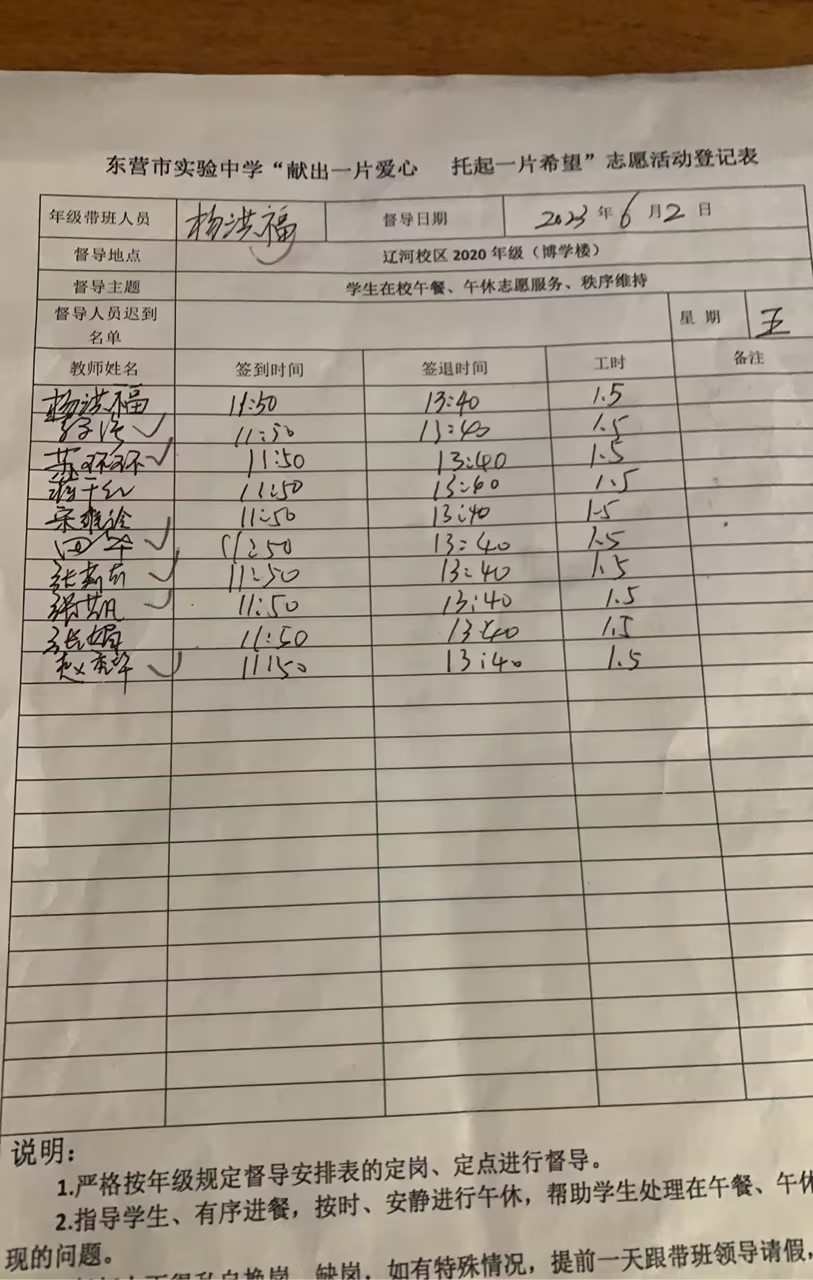 东营市实验中学“献出一片爱心 托起一片希望”志愿活动登记表
年级带班人员 杨洪福 督导日期 2023年6月2日
督导地点 辽河校区2020年级（博学楼）
督导主题 学生在校午餐、午休志愿服务、秩序维持
督导人员迟到名单 星期 五
教师姓名 签到时间 签退时间 工时 备注
杨洪福 11:50 13:40 1.5
11:50 13:40 1.5
苏环环 11:50 13:40 1.5
11:50 13:40 1.5
宋 11:50 13:40 1.5
11:50 13:40 1.5
张 11:50 13:40 1.5
11:50 13:40 1.5
张娟 11:50 13:40 1.5
赵 11:50 13:40 1.5
说明：
1.严格按年级规定督导安排表的定岗、定点进行督导。
2.指导学生、有序进餐，按时、安静进行午休，帮助学生处理在午餐、午休
现的问题。
缺岗，如有特殊情况，提前一天跟带班领导请假，